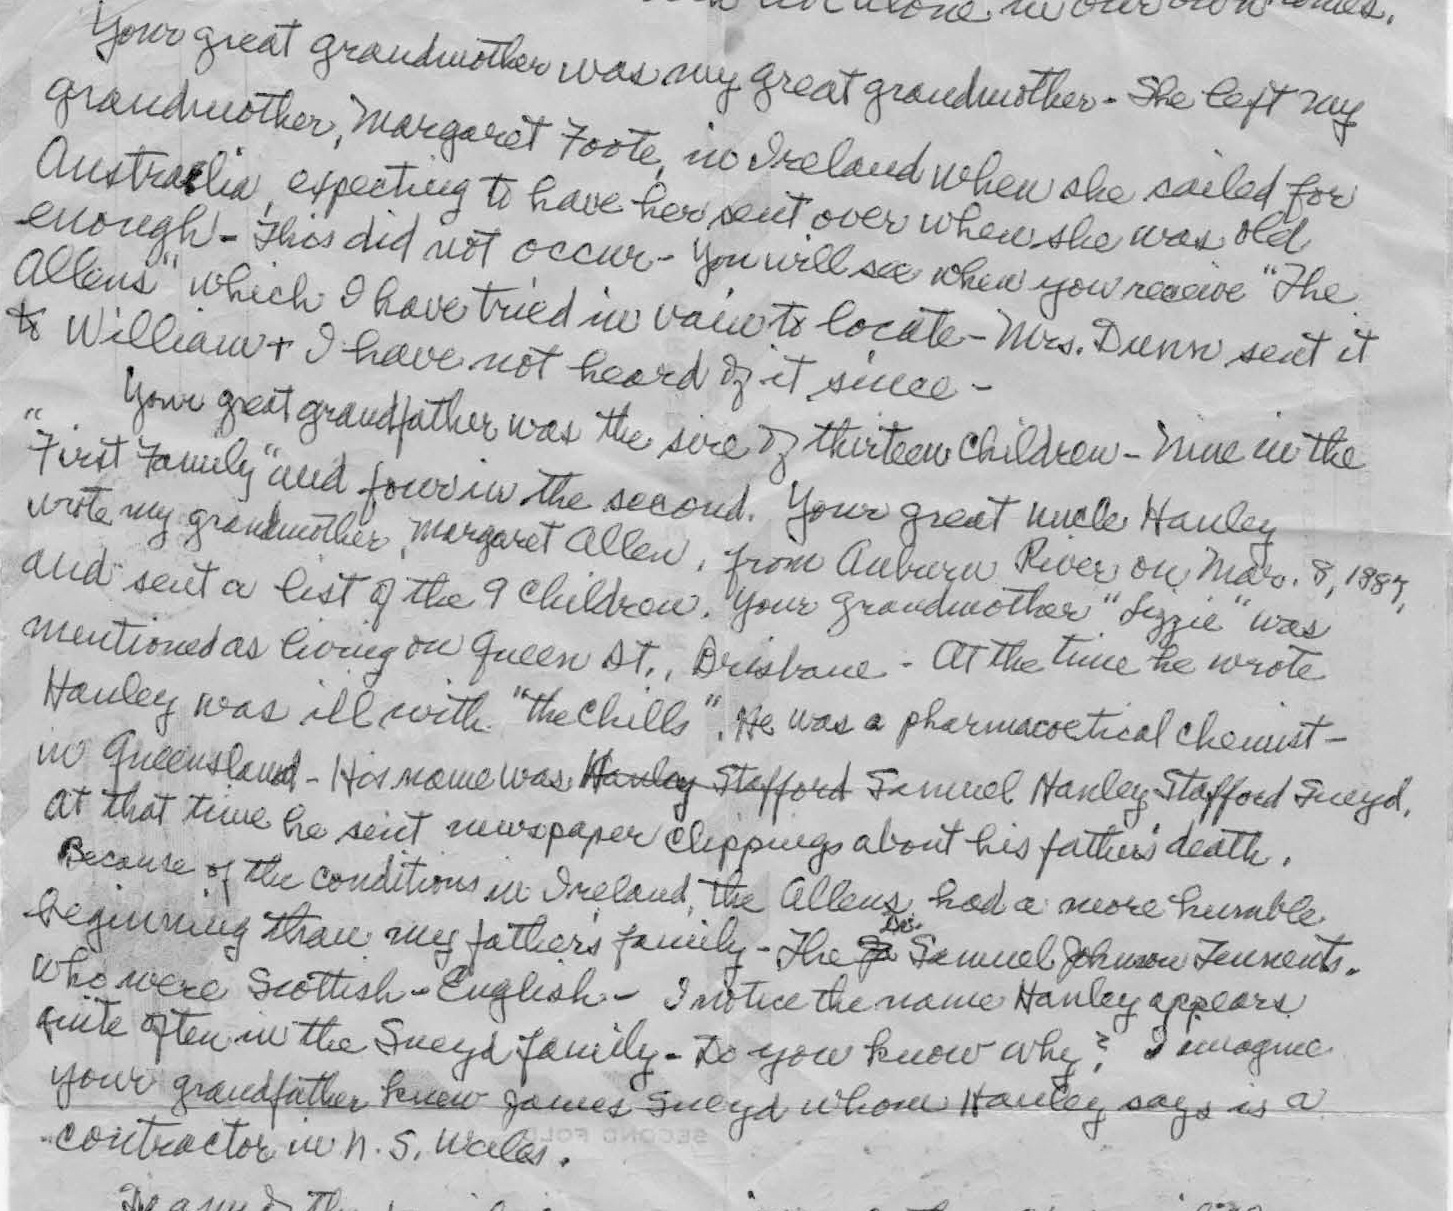 alone in our own homes.
Your great grandmother was my great grandmother - She left my
grandmother, Margaret Foote, in Ireland when she sailed for
Australia, expecting to have her sent over when she was old
enough - This did not occur - You will see when you receive "The
Allens" which I have tried in vain to locate - Mrs. Dunn sent it
to William + I have not heard of it since -
Your great grandfather was the sire of thirteen children - Nine in the
"First Family" and four in the second. Your great uncle Hanley
wrote my grandmother, Margaret Allen, from Auburn River on Mar. 8, 1887,
and sent a list of the 9 children. Your grandmother "Lizzie" was
mentioned as living on Queen St., Brisbane - At the time he wrote
Hanley was ill with "the Chills". He was a pharmacoetical chemist -
in Queensland - His name was Hanley Stafford Samuel Hanley Stafford Sneyd.
At that time he sent newspaper clippings about his father's death.
Because of the conditions in Ireland, the Allens had a more humble
beginning than my father's family - The Dr. Samuel Johnson Tennents.
who were Scottish - English - I notice the name Hanley appears
quite often in the Sneyd family - Do you know why? I imagine
your grandfather knew James Sneyd whom Hanley says is a
contractor in N. S. Wales.
SECOND FOLD